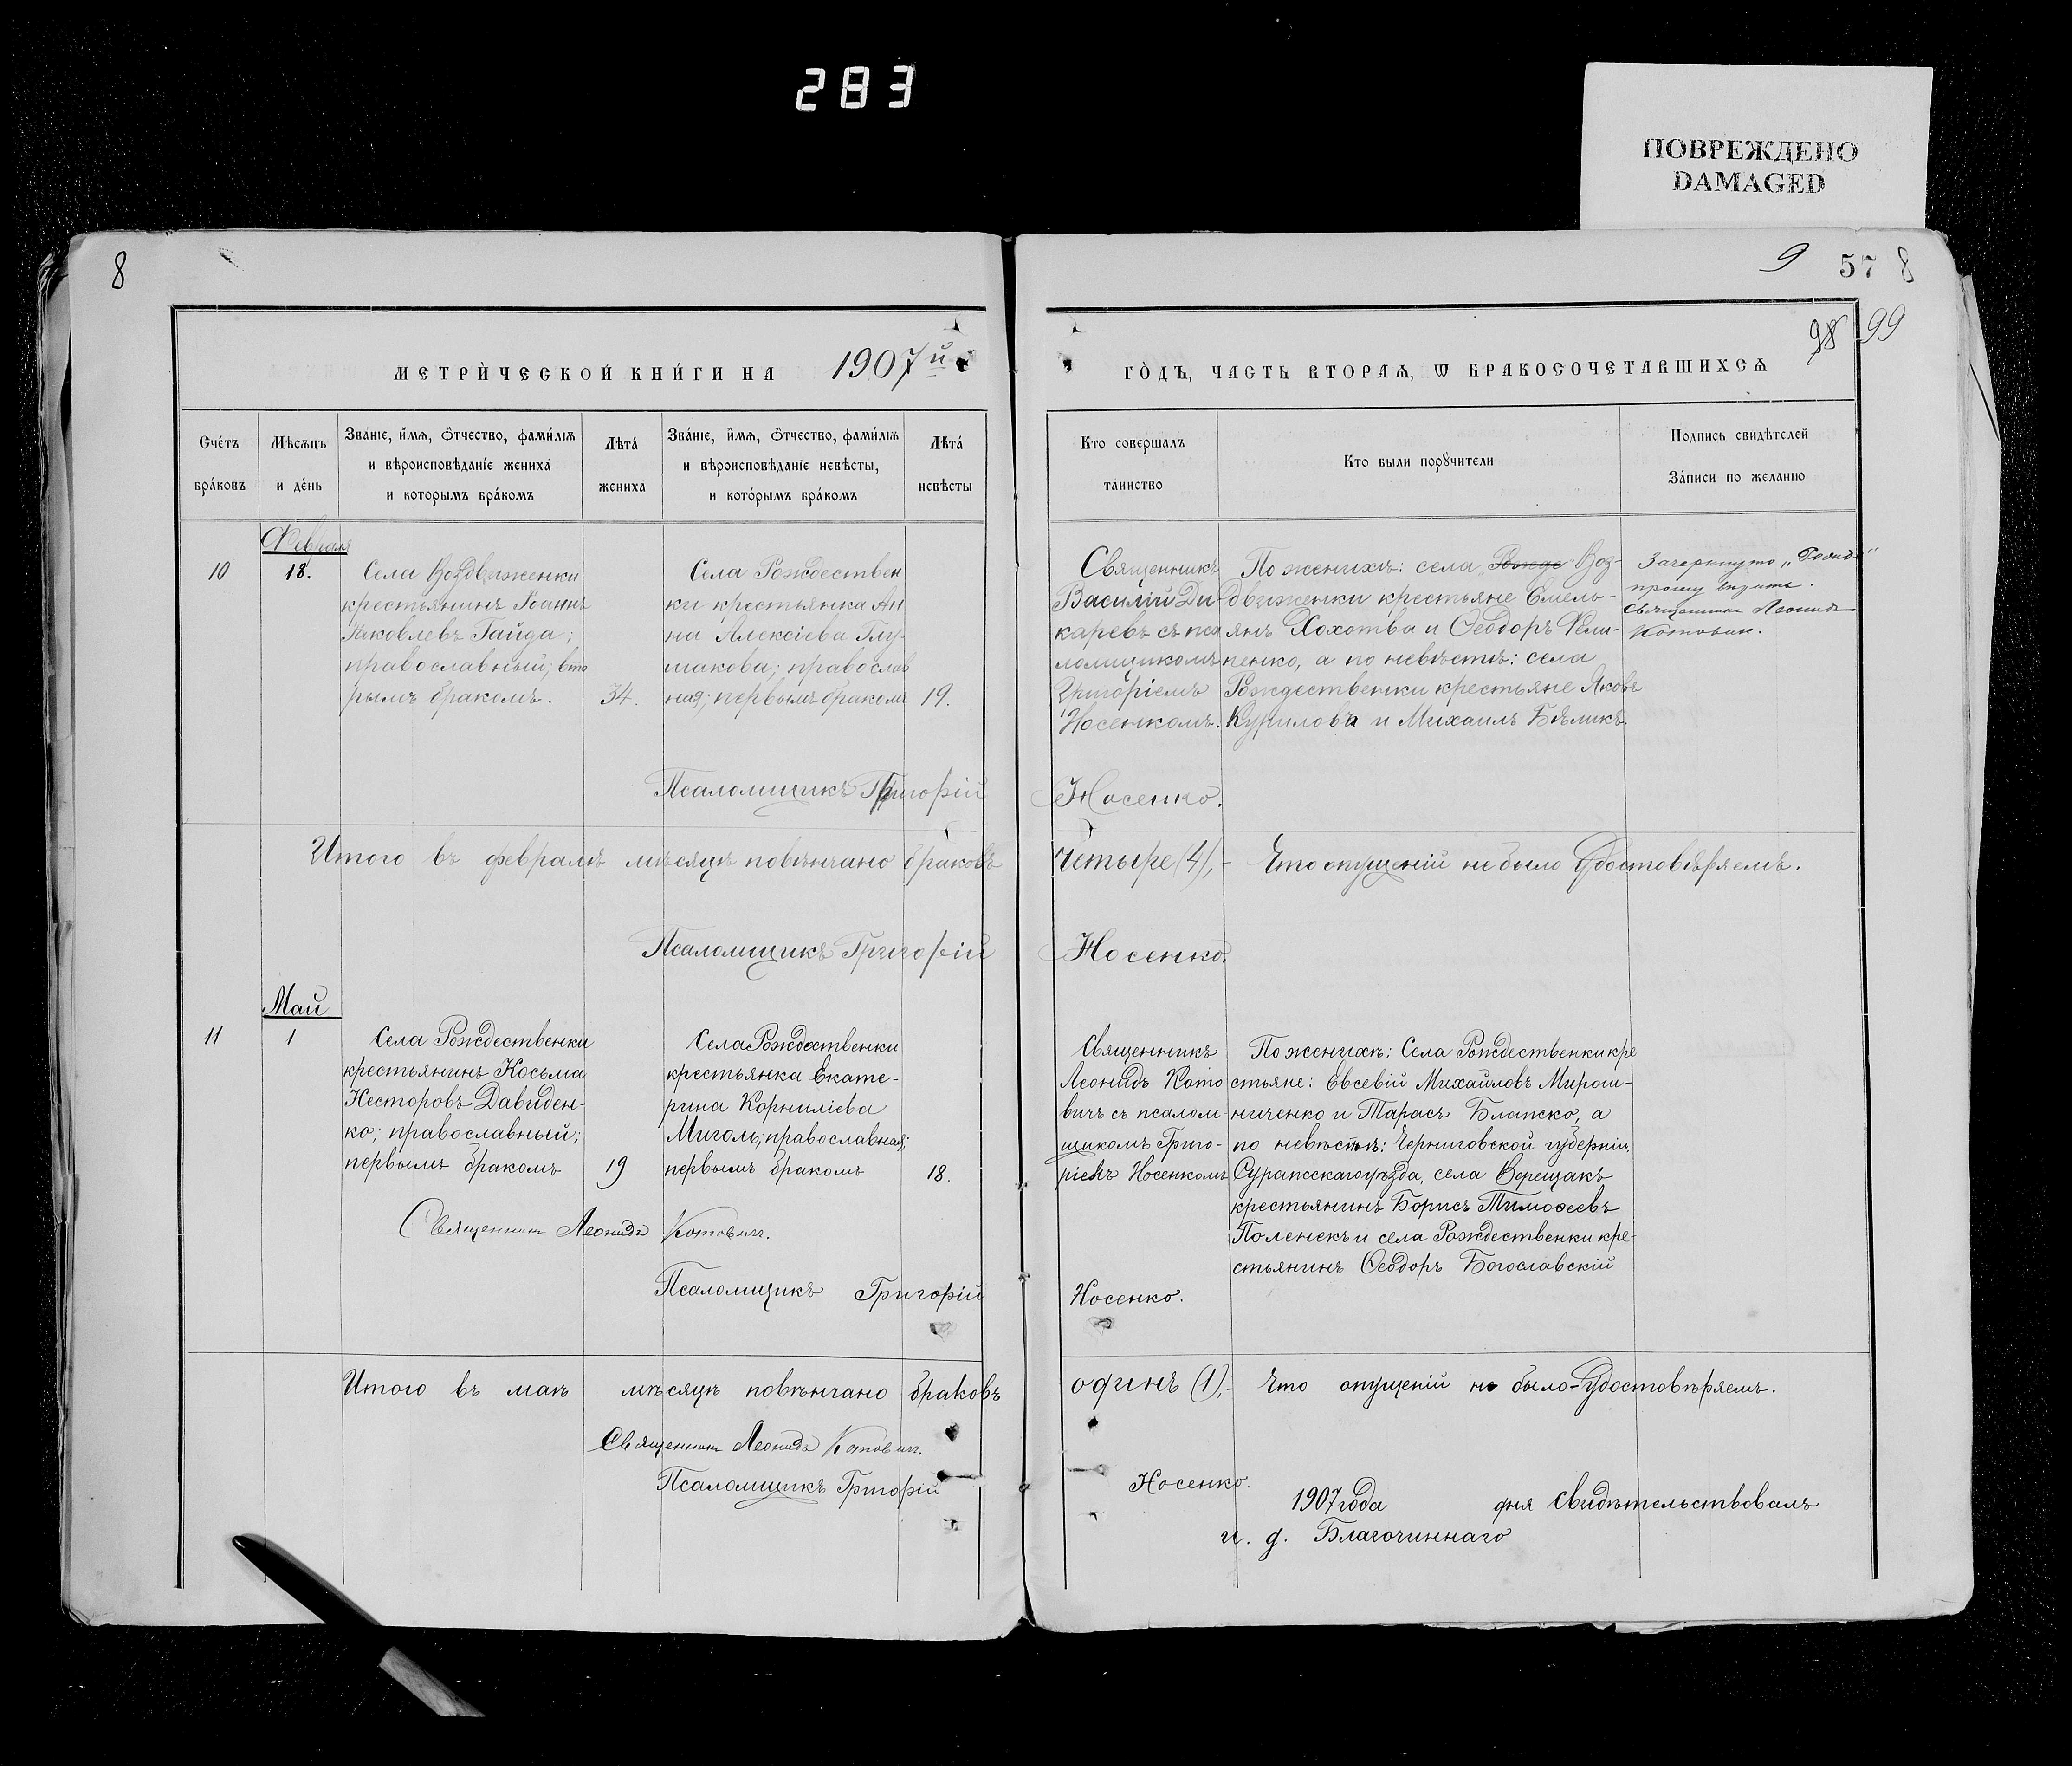 283
ПОВРЕЖДЕНО
DAMAGED
8
9 57 8
98 99
МЕТРИ́ЧЕСКОЙ КНИ́ГИ НА 1907й
ГО́ДЪ, ЧАСТЬ ВТОРАѦ, Ѡ БРАКОСОЧЕТАВШИХСѦ
Счétъ бра́ковъ
Мѣсѧцъ и де́нь
Зва́нїе, и́мѧ, о́тчество, фами́лїѧ
и вѣроисповѣданїе жениха̀
и которымъ бра́комъ
Лѣта́ жениха
Зва́нїе, и́мѧ, о́тчество, фами́лїѧ
и вѣроисповѣданїе невѣсты,
и кото́рымъ бра́комъ
Лѣта́ невѣсты
Кто совершалъ таинство
Кто были порꙋчители
Подпись свидѣтелей
За́писи по желанїю
Февраля
10
18.
Села Воздвиженки
крестьянинъ Іоаннъ
Яковлевъ Гайда;
православный; вто
рымъ бракомъ.
34.
Села Рождествен
ки крестьянка Ан
на Алексіева Глу-
шакова; православ
ная; первымъ бракомъ
19.
Священникъ
Василій Ди-
каревъ съ пса
ломщикомъ
Григоріемъ
Носенкомъ.
По женихѣ: села Рожде Воз-
движенки крестьяне Емель-
янъ Хохотва и Ѳеодоръ Фили-
пенко, а по невѣстѣ: села
Рождественки крестьяне Яковъ
Курилова и Михаилъ Бѣликъ.
Зачеркнуто „
прошу
Священникъ Леонидъ
Котович.
Псаломщикъ Григорій Носенко.
Итого въ февралѣ мѣсяцѣ повѣнчано браковъ четыре (4),- Что опущеній не было удостовѣряемъ.
Псаломщикъ Григорій Носенко.
Май
11
1
Села Рождественки
крестьянинъ Косьма
Несторовъ Давиден-
ко; православный;
первымъ бракомъ
19
Села Рождественки
крестьянка Екате-
рина Корниліева
Миголь, православная;
первымъ бракомъ
18.
Священникъ
Леонидъ Кото
вичъ съ псалом-
щикомъ Григо-
ріемъ Носенкомъ
По женихѣ: Села Рождественки кре
стьяне: Евсевій Михайловъ Мирош-
ниченко и Тарасъ а
по невѣстѣ: Черниговской губерніи,
Суражскаго уѣзда, села Верещакъ
крестьянинъ Борисъ Тимоѳеевъ
Поленекъ и села Рождественки кре-
стьянинъ Ѳеодоръ Богославскій
Священник Леонидъ Котович.
Псаломщикъ Григорій Носенко.
Итого въ маѣ мѣсяцѣ повѣнчано браковъ одинъ (1),- Что опущеній не было-удостовѣряемъ.
Священник Леонидъ Котович.
Псаломщикъ Григорій Носенко.
1907 года дня свидѣтельствовалъ
и. д. Благочиннаго